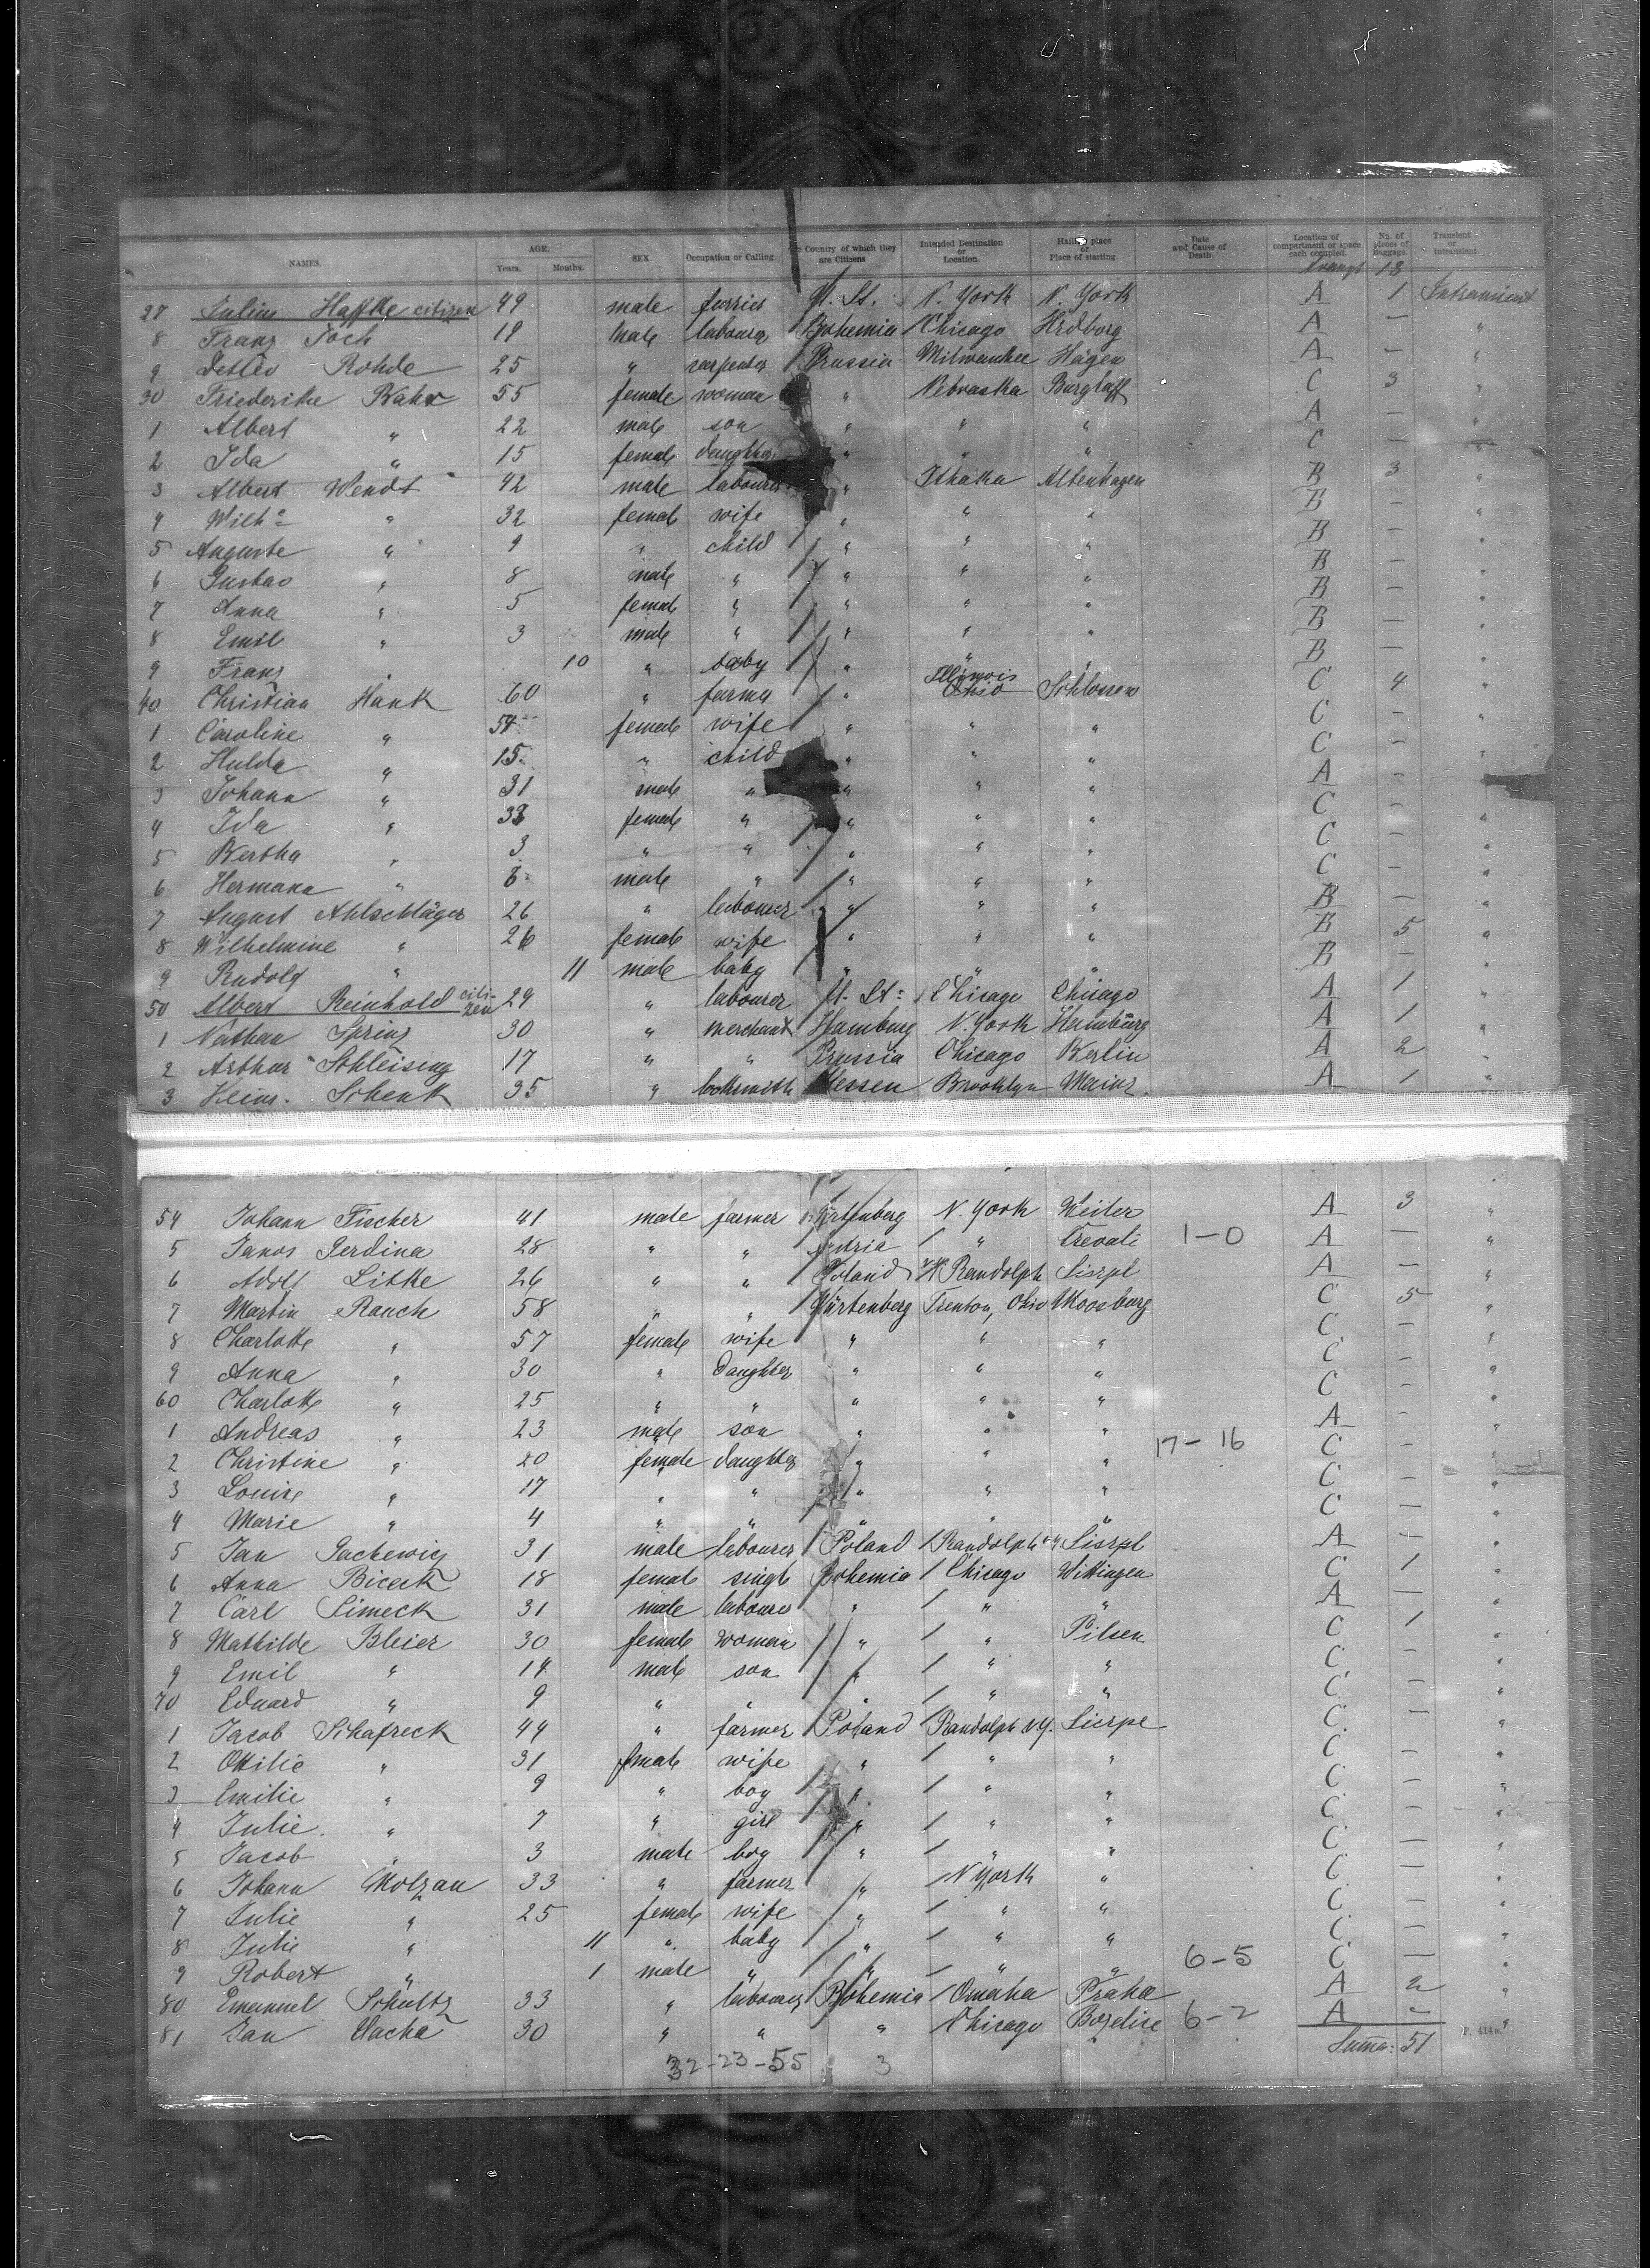 NAMES. AGE. Years. Months. SEX. Occupation or Calling. Country of which they are Citizens Intended Destination or Location. Hailing place or Place of starting. Date and Cause of Death. Location of compartment or space each occupied. No. of pieces of Baggage. Transient or Intransient.
18
27 Julius Haffke citizen 49 male furrier U. St. N. York N. York A 1 Intransient
8 Franz Toch 19 male labourer Bohemia Chicago A — "
9 Detlev Rohde 25 " carpenter Prussia Milwaukee Hagen A — "
30 Friederike Kahr 55 female woman " Nebraska C 3 "
1 Albert " 22 male son " " " A — "
2 Ida " 15 female daughter " " " C — "
3 Albert Wendt 42 male labourer " Ithaka Altenhagen B 3 "
4 Wilhe " 32 female wife " " " B — "
5 Auguste " 9 " child " " " B — "
6 Gustav " 8 male " " " " B — "
7 Anna " 5 female " " " " B — "
8 Emil " 3 male " " " " B — "
9 Franz " 10 " baby " " " B — "
40 Christian Hank 60 " farmer " Illinois Ohio Schlossow C 4 "
1 Caroline " 54 female wife " " " C — "
2 Hulda " 15 " child " " " C — "
3 Johann " 31 male " " " " A — "
4 Ida " 33 female " " " " C — "
5 Bertha " 3 " " " " " C — "
6 Hermann " 8 male " " " " C — "
7 August Ahlschläger 26 " labourer " " " B — "
8 Wilhelmine " 26 female wife " " " B 5 "
9 Rudolf " 11 male baby " " " B — "
50 Albert Reinhold citizen 29 " labourer U. St: Chicago Chicago A 1 "
1 Nathan Spring 30 " merchant Hamburg N. York Hamburg A 1 "
2 Arthur Schleising 17 " " Prussia Chicago Berlin A 2 "
3 Heinr. Schenk 35 " locksmith Hessen Brooklyn Mainz A 1 "
54 Johann Fischer 41 male farmer Würtenberg N. York Weiler A 3 "
5 Janos Perdina 28 " " Austria " 1-0 A — "
6 Adolf Litke 26 " " Poland Randolph Sierpl A — "
7 Martin Rauch 58 " " Würtenberg Trenton, Ohio Moosburg C 5 "
8 Charlotte " 57 female wife " " " C — "
9 Anna " 30 " daughter " " " C — "
60 Charlotte " 25 " " " " " C — "
1 Andreas " 23 male son " " " A — "
2 Christine " 20 female daughter " " " 17-16 C — "
3 Louise " 17 " " " " " C — "
4 Marie " 4 " " " " " C — "
5 Jan Packewicz 31 male labourer Poland Randolph N.Y Sierpl A — "
6 Anna Biceck 18 female single Bohemia Chicago Wittingen C 1 "
7 Carl Simeck 31 male labourer " " " A — "
8 Mathilde Bleier 30 female woman " " Pilsen C 1 "
9 Emil " 14 male son " " " C — "
70 Eduard " 9 " " " " " C — "
1 Jacob Schafreck 44 " farmer Poland Randolph N.Y. Sierpe C — "
2 Ottilie " 31 female wife " " " C — "
3 Emilie " 9 " boy " " " C — "
4 Julie " 7 " girl " " " C — "
5 Jacob " 3 male boy " " " C — "
6 Johann Molzan 33 " farmer " N York " C — "
7 Julie " 25 female wife " " " C — "
8 Julie " 11 " baby " " " C — "
9 Robert " 1 male " " " " 6-5 C — "
80 Emanuel Schultz 33 " labourer Bohemia Omaha Praha A 2 "
81 Jan Vacha 30 " " " Chicago 6-2 A — "
32-23-55 3 Suma: 51